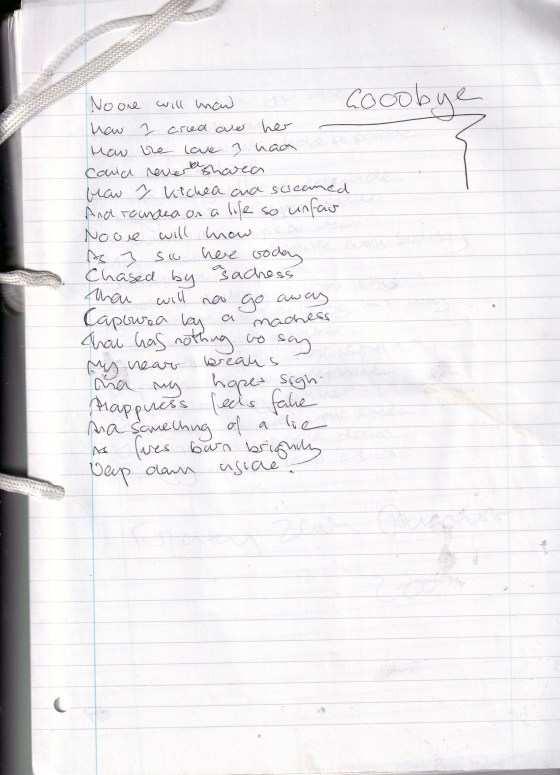 Goodbye
No one will know
How I cried over her
How the love I had
Could never be shared
How I kicked and screamed
And rounded on a life so unfair
No one will know
As I sit here today
Chased by a sadness
That will not go away
Captured by a madness
That has nothing to say
My heart breaks
And my hopes sigh.
Happiness feels fake
And something of a lie
As fires burn brightly
Deep down inside.